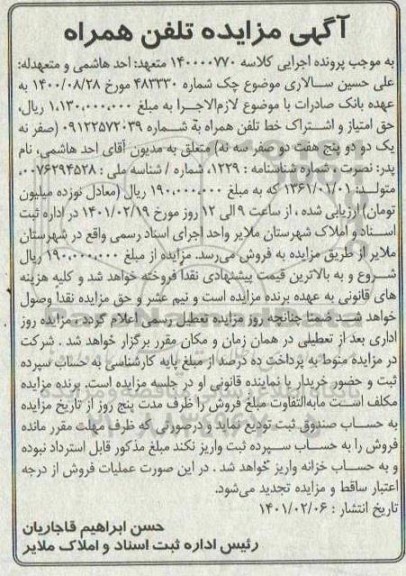 آگهی مزایده تلفن همراه
به موجب پرونده اجرایی کلاسه ۱۴۰۰۰۰۷۷۰ متعهد: احد هاشمی و متعهدله:
علی حسین سالاری موضوع چک شماره ۴۸۳۳۳۰ مورخ ۱۴۰۰/۰۸/۲۸ به
عهده بانک صادرات با موضوع لازم‌الاجرا به مبلغ ۱،۱۳۰،۰۰۰،۰۰۰ ریال،
حق امتیاز و اشتراک خط تلفن همراه به شماره ۰۹۱۲۲۵۷۲۰۳۹ (صفر نه
یک دو دو پنج هفت دو صفر سه نه) متعلق به مدیون آقای احد هاشمی، نام
پدر: نصرت، شماره شناسنامه : ۱۲۲۹، شماره / شناسه ملی : ۰۰۷۶۲۹۴۵۲۸،
متولد: ۱۳۶۱/۰۱/۰۱ که به مبلغ ۱۹۰،۰۰۰،۰۰۰ ریال (معادل نوزده میلیون
تومان) ارزیابی شده ، از ساعت ۹ الی ۱۲ روز مورخ ۱۴۰۱/۰۲/۱۹ در اداره ثبت
اسناد و املاک شهرستان ملایر واحد اجرای اسناد رسمی واقع در شهرستان
ملایر از طریق مزایده به فروش می‌رسد. مزایده از مبلغ ۱۹۰،۰۰۰،۰۰۰ ریال
شروع و به بالاترین قیمت پیشنهادی نقدا فروخته خواهد شد و کلیه هزینه
های قانونی به عهده برنده مزایده است و نیم عشر و حق مزایده نقدا وصول
خواهد شد. ضمنا چنانچه روز مزایده تعطیل رسمی اعلام گردد، مزایده روز
اداری بعد از تعطیلی در همان زمان و مکان مقرر برگزار خواهد شد . شرکت
در مزایده منوط به پرداخت ده درصد از مبلغ پایه کارشناسی به حساب سپرده
ثبت و حضور خریدار یا نماینده قانونی او در جلسه مزایده است. برنده مزایده
مکلف است مابه‌التفاوت مبلغ فروش را ظرف مدت پنج روز از تاریخ مزایده
به حساب صندوق ثبت تودیع نماید و درصورتی که ظرف مهلت مقرر مانده
فروش را به حساب سپرده ثبت واریز نکند مبلغ مذکور قابل استرداد نبوده
و به حساب خزانه واریز خواهد شد . در این صورت عملیات فروش از درجه
اعتبار ساقط و مزایده تجدید می‌شود.
تاریخ انتشار : ۱۴۰۱/۰۲/۰۶
حسن ابراهیم قاجاریان
رئیس اداره ثبت اسناد و املاک ملایر